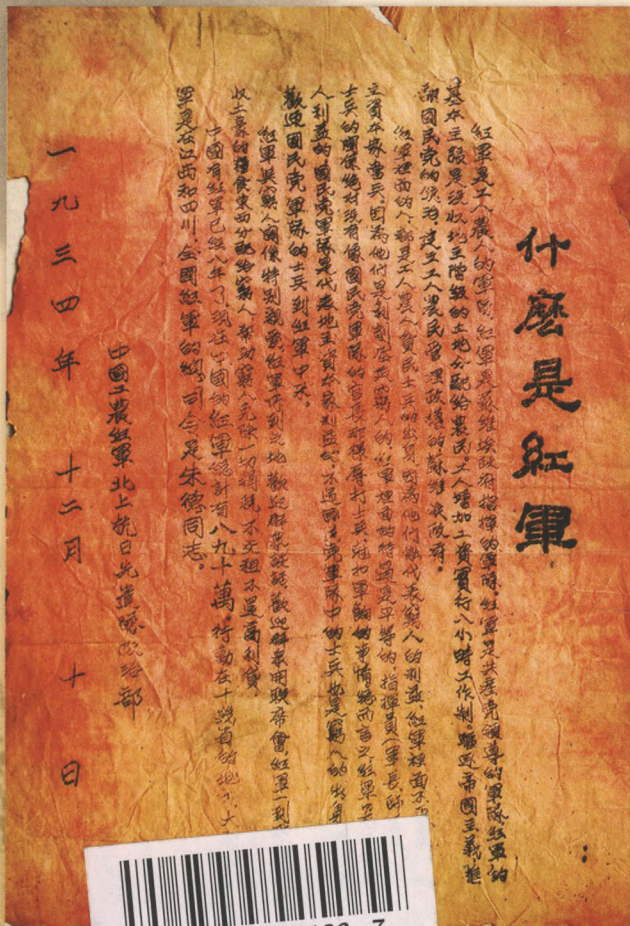 什麽是紅軍：
紅軍是工人農人的軍隊，紅軍是蘇維埃政府指揮的軍隊，紅軍是共産党領導的軍隊，紅軍的
基本主張是没收地主階級的土地分配給農民，工人增加工資，實行八小時工作制，驅逐帝國主義，推
翻國民党的統治，建立工人農民管理政權的蘇維埃政府。
紅軍裡面的人，都是工人農人貧民士兵的出身，因為他们是代表窮人的利益，紅軍裡面不要
主資本家當兵，因為他们是剥削压迫窮人的，紅軍裡面的待遇是平等的，指揮員（軍長師
士兵的關係絶对没有像國民党軍隊的官長那樣辱打士兵，尅扣軍餉的事情，總而言之，紅軍是
人利益的，國民党軍隊是代表地主資本家利益的，不過國民党軍隊中的士兵也是窮人的出身
歡迎國民党軍隊的士兵到紅軍中來。
紅軍與窮人關係特别親密，紅軍所到之地，歡迎群衆談話，歡迎群衆開聯席會，紅軍一到
收土豪的糧食東西分配給窮人，幇助窮人免除一切捐税，不交租不還高利貸。
中國有紅軍已經八年了，現在中國的紅軍總計有八九十萬，行動在十幾省的地下，大
軍是在江西和四川，全國紅軍的總司令是朱德同志。
中國工農紅軍北上抗日先遣隊政治部
一九三四年 十二月 十 日
7